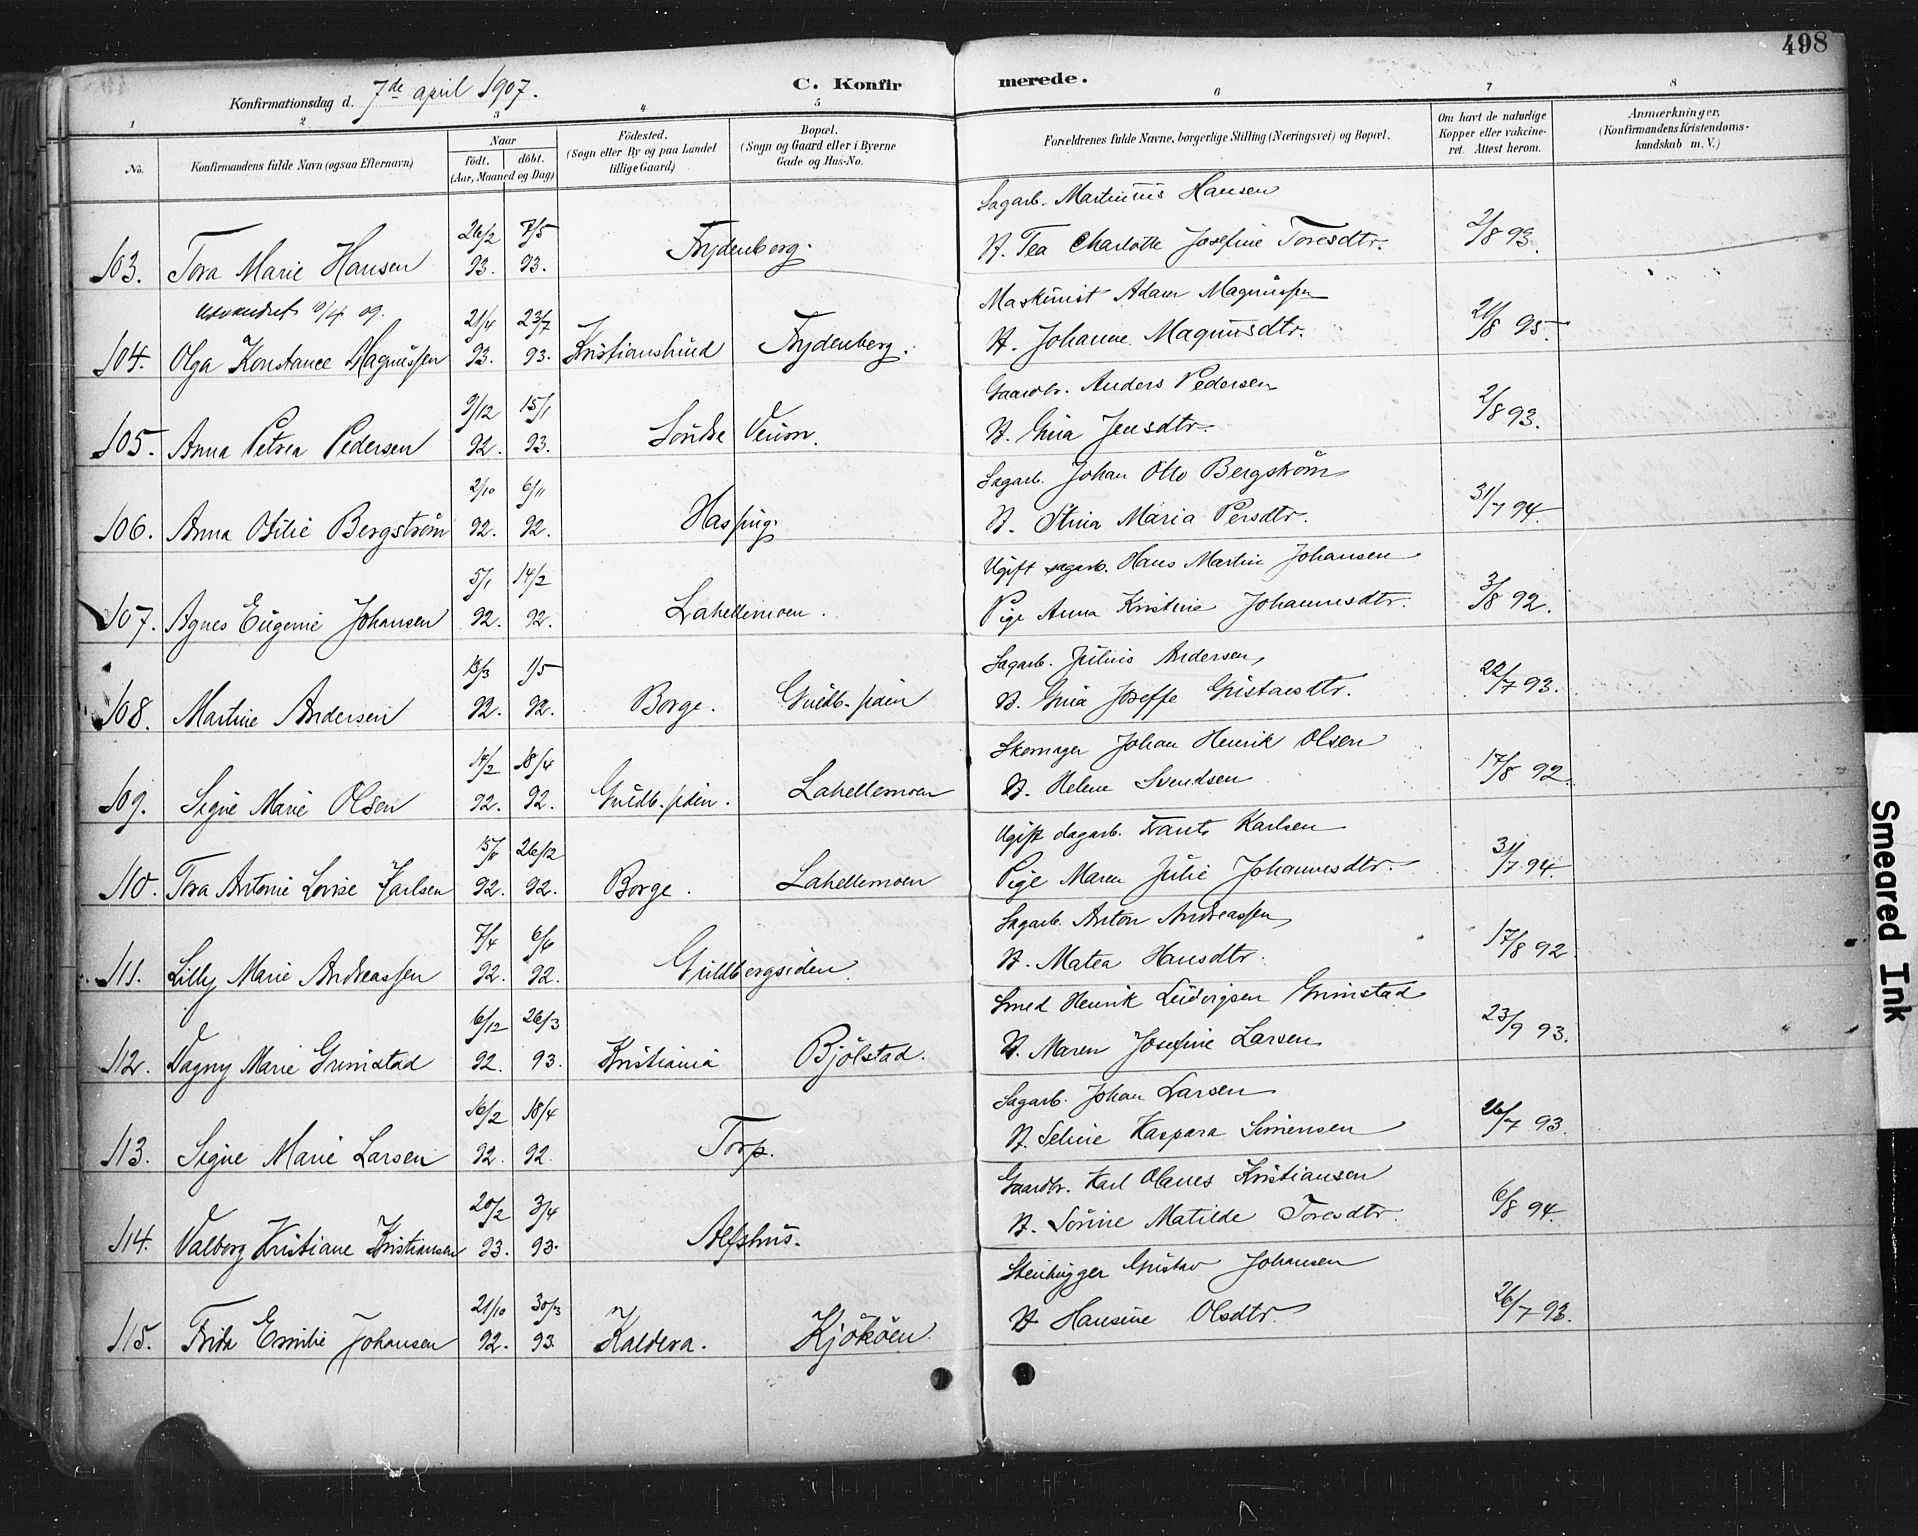 498
Konfirmationsdag d. 7de april 1907.
C. Konfirmerede.
1 2 3 4 5 6 7 8
No.
Konfirmandens fulde Navn (ogsaa Efternavn)
Naar
Født. døbt.
(Aar, Maaned og Dag)
Fødested.
(Sogn eller By og paa Landet
tillige Gaard)
Bopæl.
(Sogn og Gaard eller i Byerne
Gade og Hus-No.
Forældrenes fulde Navne, borgerlige Stilling (Næringsvei) og Bopæl.
Om havt de naturlige
Kopper eller vakcine-
ret. Attest herom.
Anmærkninger,
(Konfirmandens Kristendoms-
kundskab m. V.)
Sagarb. Martinius Hansen
26/2 7/5
103. Tora Marie Hansen 93. 93. Frydenberg. H. Tea Charlotte Josefine Toresdtr. 2/8 93.
Udvandret 9/4 09. 21/4 23/7 Maskinist Adam Magnussen
104. Olga Konstance Magnussen 93. 93. Kristianshund Frydenberg. H. Johanne Magnusdtr. 21/8 95.
9/12 15/1 Gaardbr. Anders Pedersen
105. Anna Petrea Pedersen 92. 93. Söndre Veum. H. Gina Jensdtr. 2/8 93.
2/10 6/11 Sagarb. Johan Otto Bergström
106. Anna Otilie Bergström 92. 92. Hasping. H. Stina Maria Persdtr. 31/7 94.
5/1 14/2 Ugift sagarb. Hans Martin Johansen
107. Agnes Eugenie Johansen 92. 92. Lahellemoen. Pige Anna Kristine Johannesdtr. 3/8 92.
13/3 1/5 Sagarb. Julius Andersen,
108. Martine Andersen 92. 92. Borge. Guldb.siden H. Gina Joseffe Gustavsdtr. 22/7 93.
14/2 18/4 Skomager Johan Henrik Olsen
109. Signe Marie Olsen 92. 92. Guldb.siden. Lahellemoen H. Helene Svendsen 17/8 92.
26/12 Ugift dagarb. Frants Karlsen
110. Tora Antonie Lovise Karlsen 92. 92. Borge. Lahellemoen Pige Maren Julie Johannesdtr. 31/7 94.
7/4 6/6 Sagarb. Anton Andreassen
111. Lilly Marie Andreassen 92. 92. Guldbergsiden. H. Matea Hansdtr. 17/8 92.
6/12 26/3 Smed Henrik Ludvigsen Grimstad
112. Dagny Marie Grimstad 92. 93. Kristiania Bjölstad. H. Maren Josefine Larsen 23/9 93.
16/2 18/4 Sagarb. Johan Larsen
113. Signe Marie Larsen 92. 92. Torp. H. Seline Kaspara Simensen 26/7 93.
20/2 3/4 Gaardbr. Karl Olaves Kristiansen
114. Valborg Kristiane Kristiansen 93. 93. Alfshus. H. Sörine Matilde Toresdtr. 6/8 94.
21/10 30/3 Stenhugger Gustav Johansen
115. Frida Emilie Johansen 92. 93. Kaldera. Kjököen. H. Hansine Olsdtr. 26/7 93.
Smeared Ink